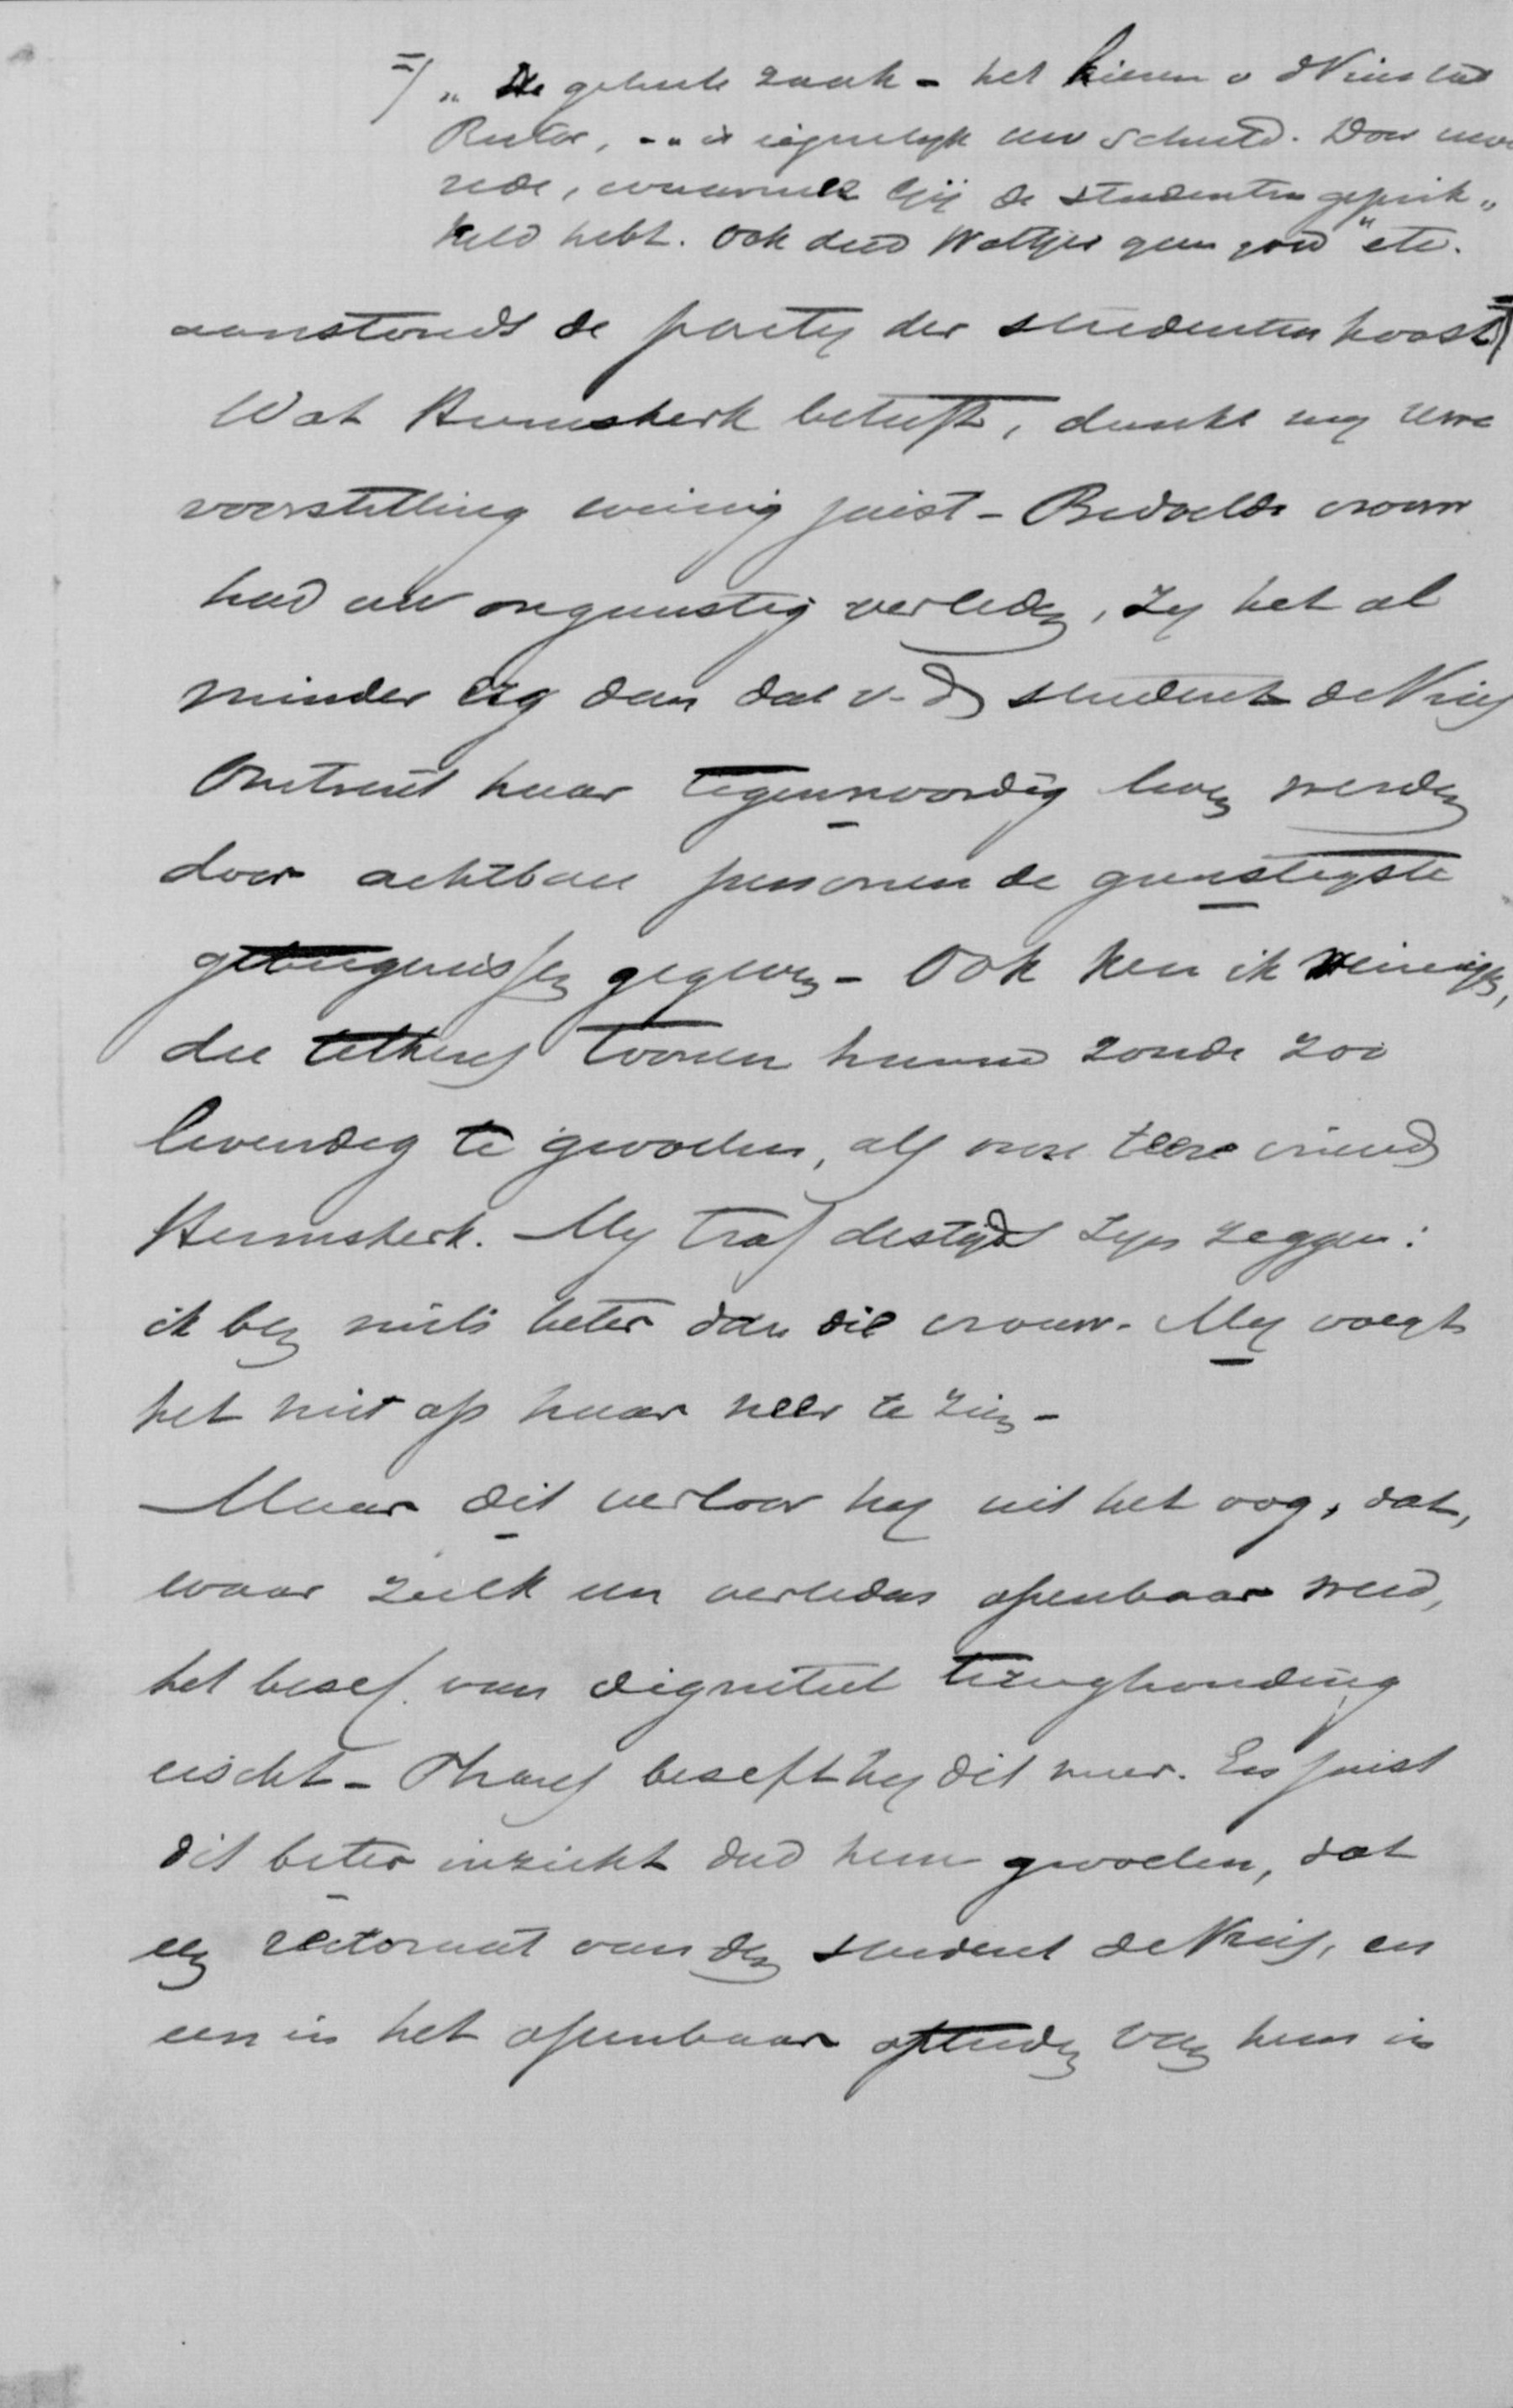 =/ „De geheele zaak - het kiezen v dVries tot
Rector, -.. is eigenlyk uw schuld. Door uwe
rede, waarmee Gij de studenten geprik„
keld hebt. Ook deed Woltjer geen goed" etc.
aanstonds de party der studenten koost =/
Wat Heemskerk betreft, dunkt my uwe
voorstelling weinig juist - Bedoelde vrouw
had een ongunstig verleden, zy het al
minder erg dan dat v. d. student de Vries
Omtrent haar tegenwoordig leven werden
door achtbare personen de gunstigste
getuigenissen gegeven - Ook ken ik weinigen,
die telkens toonen hunne zonde zoo
levendig te gevoelen, als onze teere vriend
Heemskerk. My trof destyds zyn zeggen:
ik ben niets beter dan die vrouw. My voegt
het niet op haar neer te zien -
Maar dit verloor hy uit het oog, dat,
waar zulk een verleden openbaar werd,
het besef van digniteit terughouding
eischt - Thans beseft hy dit meer. En juist
dit beter inzicht deed hem gevoelen, dat
een rectoraat van den student de Vries, en
een in het openbaar optreden van hem in